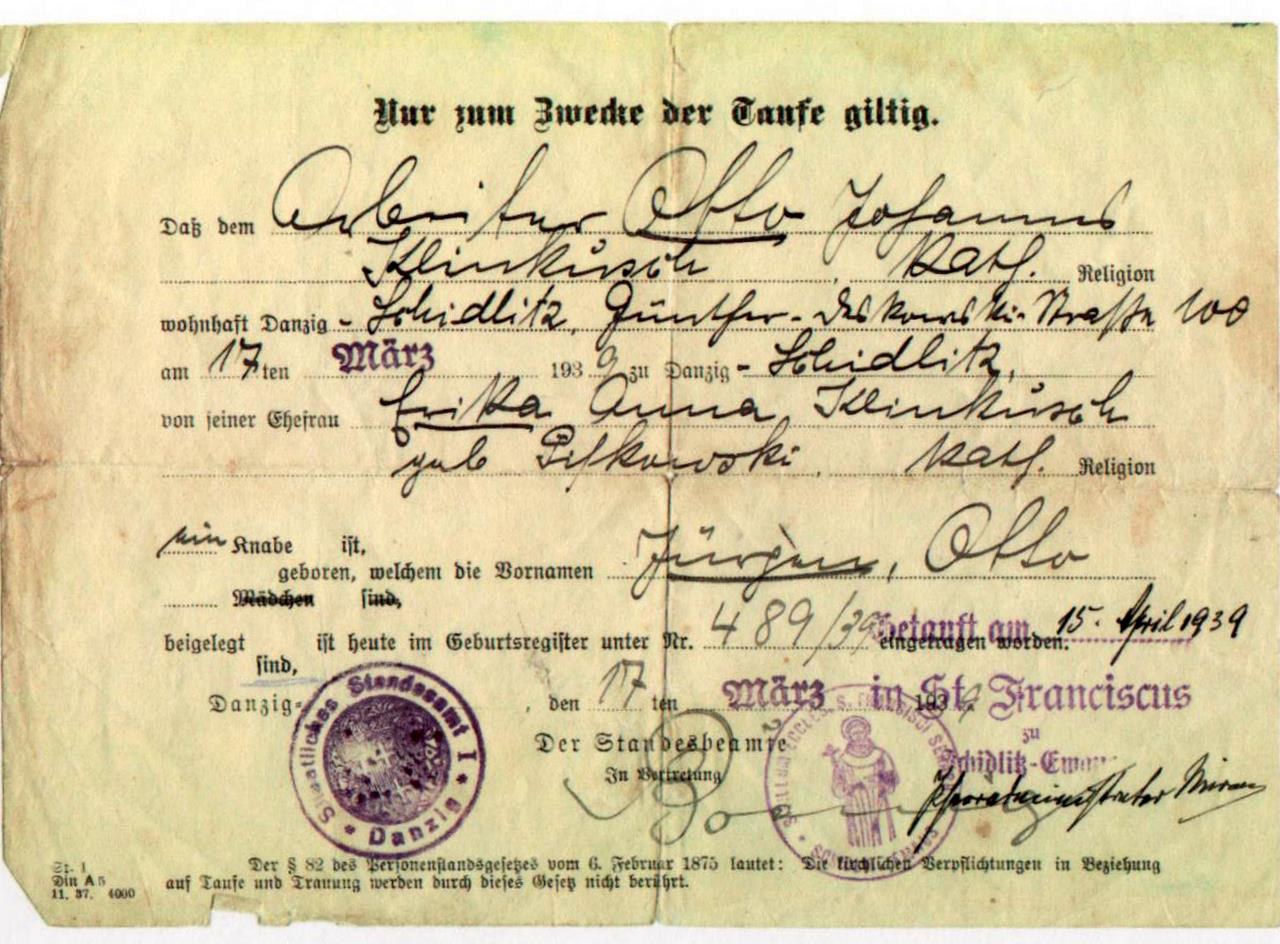 Nur zum Zwecke der Taufe giltig.
Daß dem Arbeiter Otto Johannes
Klinkusch, kath. Religion
wohnhaft Danzig - Schidlitz, Günther-Straße 100
am 17ten März 1939 zu Danzig - Schidlitz,
von seiner Ehefrau Erika Anna Klinkusch
geb. kath. Religion
ein Knabe ist,
geboren, welchem die Vornamen Jürgen, Otto
Mädchen sind,
beigelegt ist heute im Geburtsregister unter Nr. 489/39 eingetragen worden.
sind,
Getauft am 15. April 1939
Danzig= , den 17ten März 1939
in St. Franciscus
zu
Schidlitz-Emaus
Der Standesbeamte
In Vertretung
Pfarradministrator
Staatliches Standesamt I
Danzig
St. 1
Din A 5
11. 37. 4000
Der § 82 des Personenstandsgesetzes vom 6. Februar 1875 lautet: Die kirchlichen Verpflichtungen in Beziehung
auf Taufe und Trauung werden durch dieses Gesetz nicht berührt.